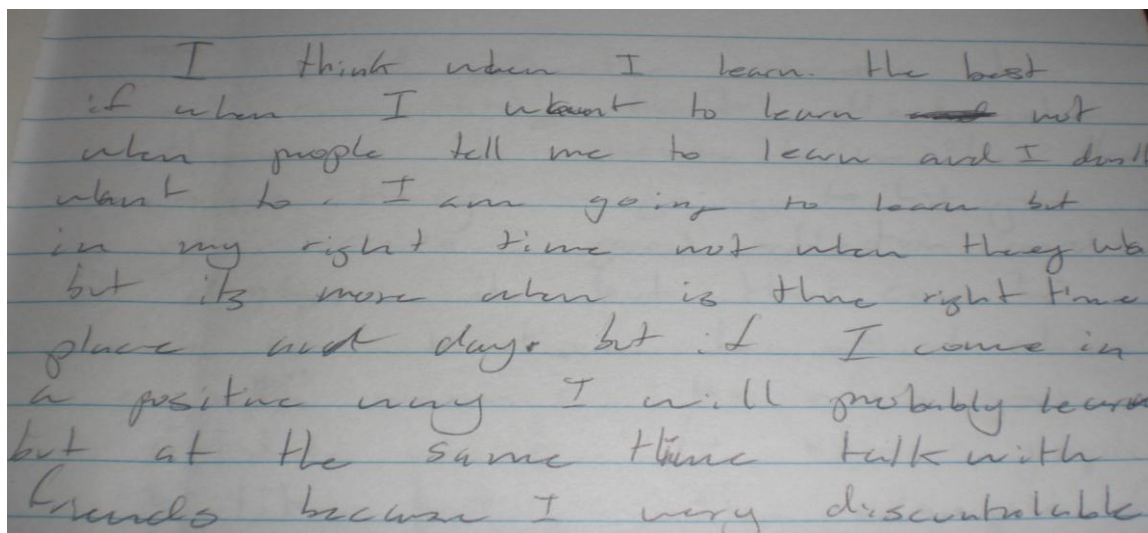 I think when I learn. the best
if when I want to learn not
when people tell me to learn and I don't
want to. I am going to learn but
in my right time not when they wa
but its more when is the right time
place and day. but if I come in
a positive way I will probably learn
but at the same time talk with
friends because I very discontrolable